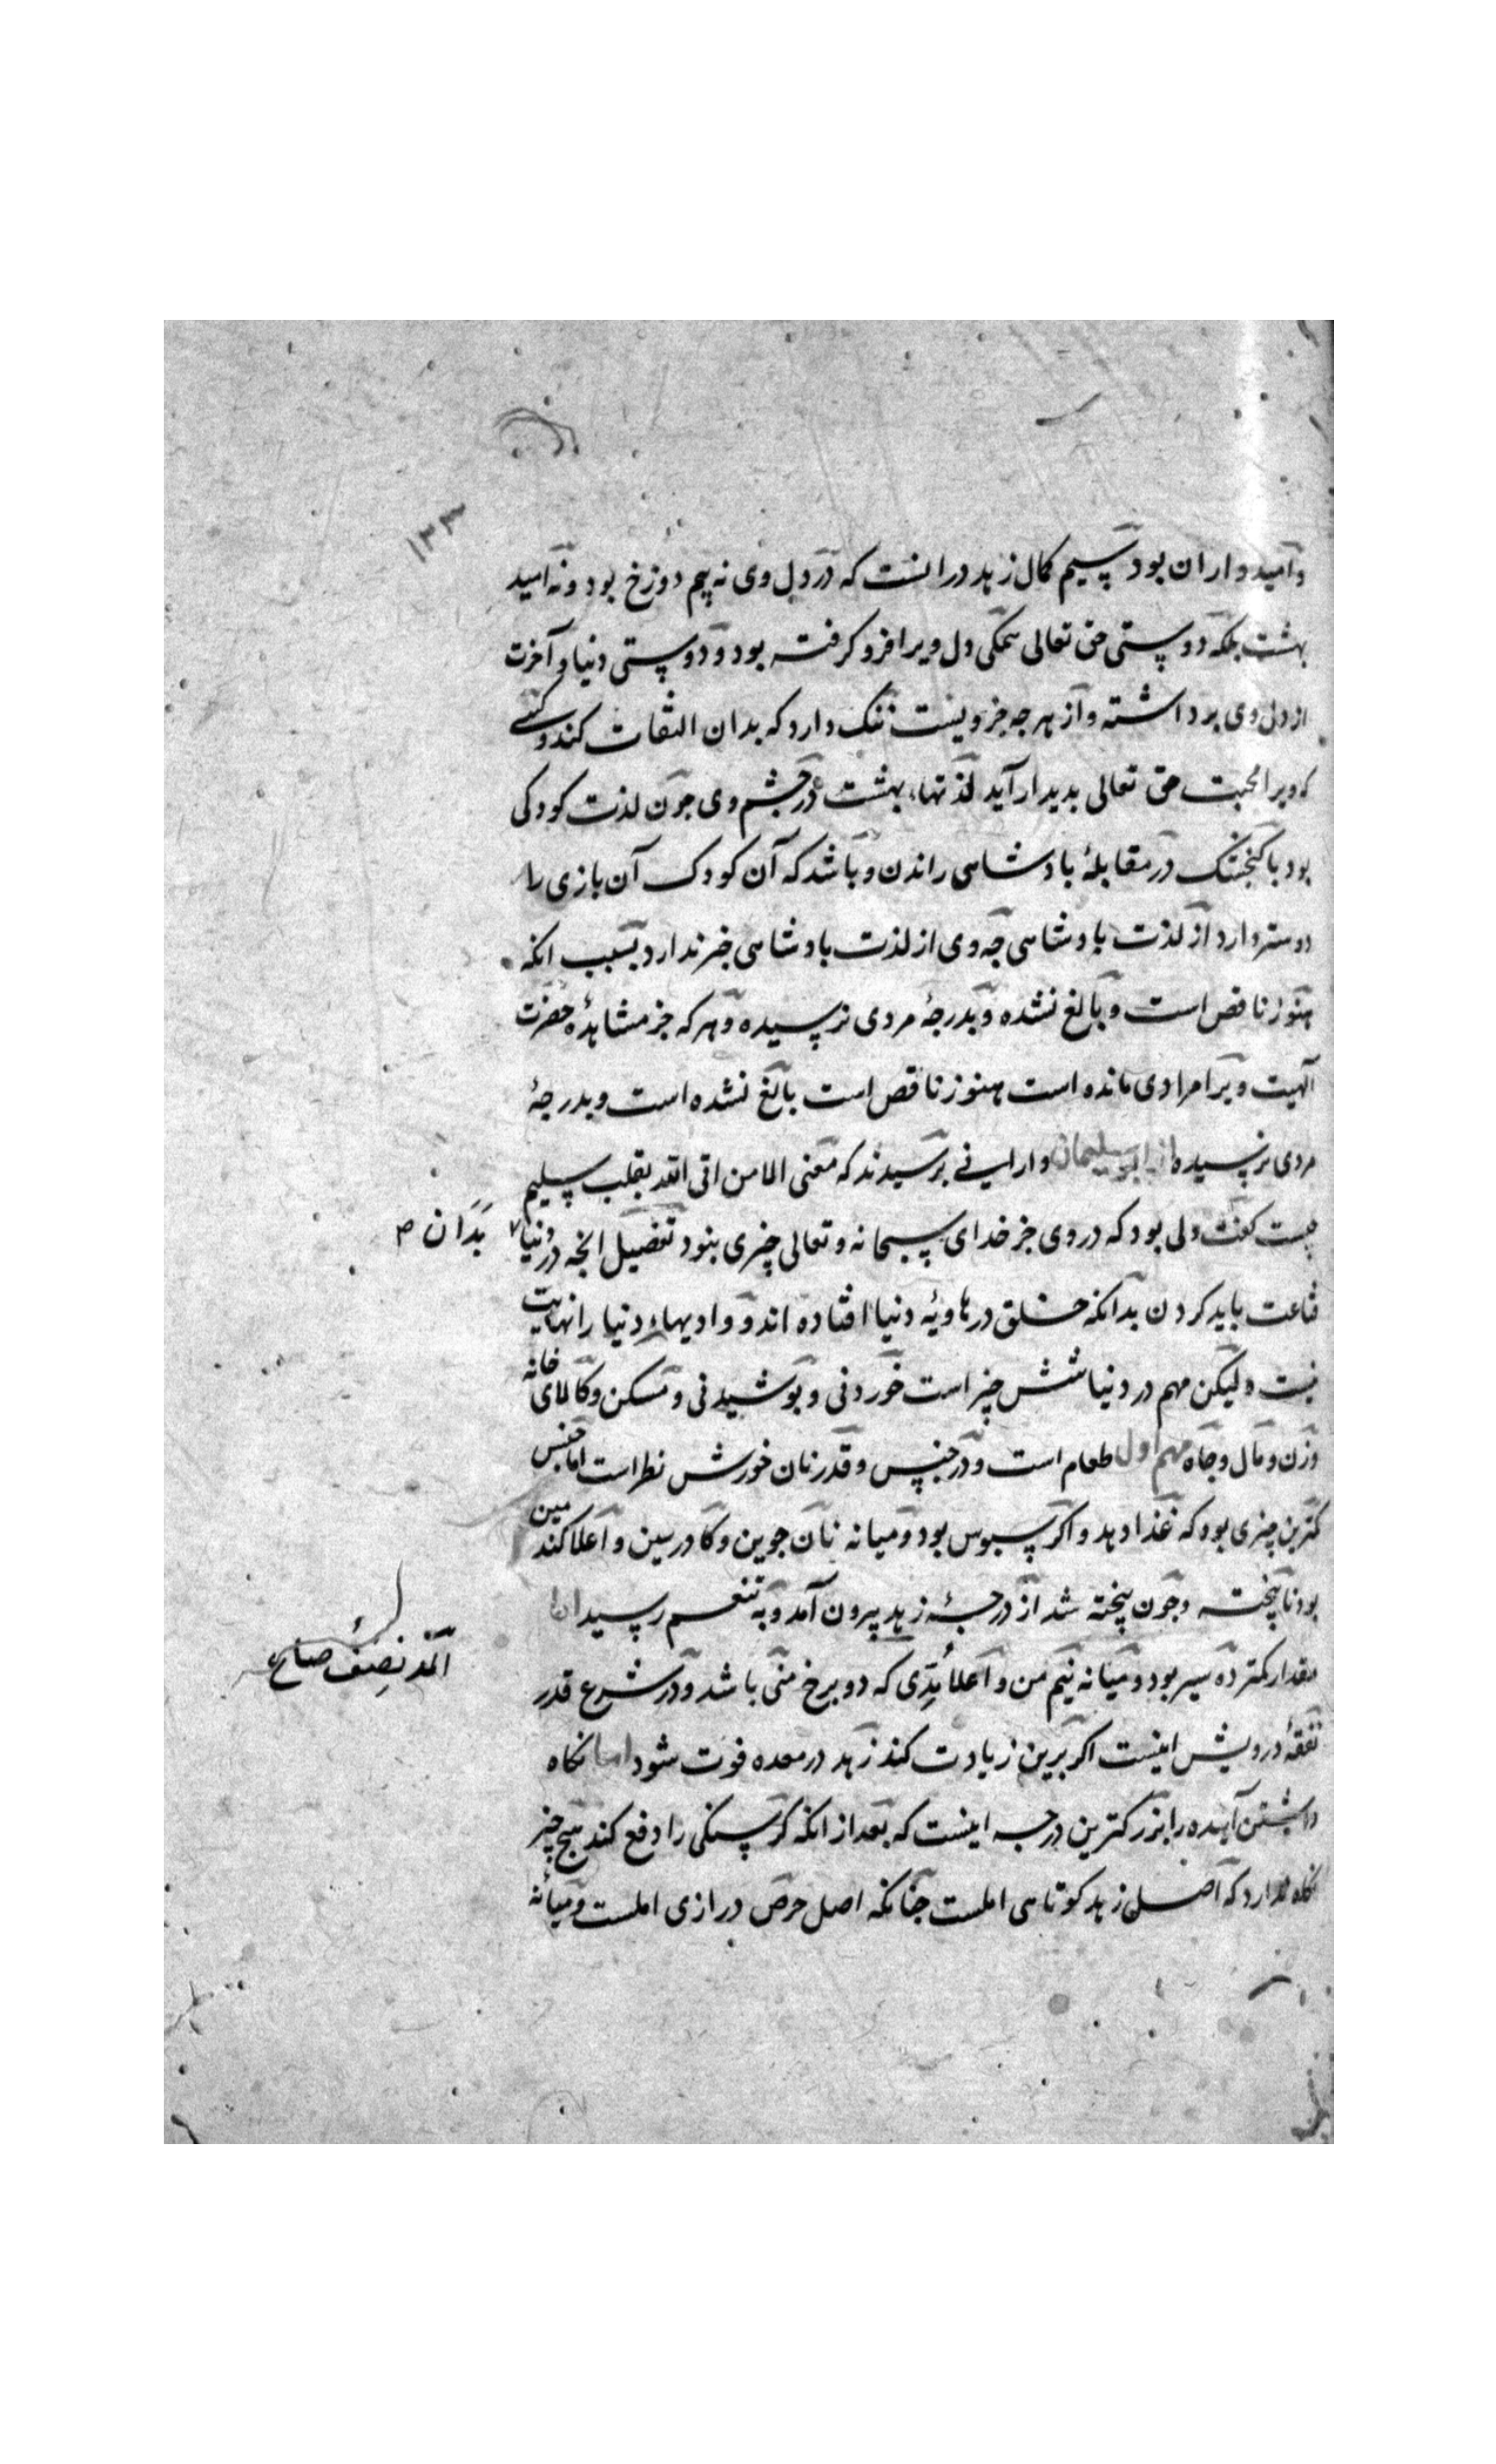 ۱۳۳
و امیدواران بود سیم کمال زهد در انست که در دل وی نه بیم دوزخ بود و نه امید
بهشت بلکه دوستی حق تعالی همکی دل ویرا فرو کرفته بود و دوستی دنیا و آخرت
از دل وی برداشته و از هرجه جز ویست ننک دارد که بدان التفات کند و کسی
که ویرا محبت حق تعالی بدیدار آید لذتهاء بهشت در جشم وی جون لذت کودکی
بود با کنجشک در مقابلهٔ بادشاهی راندن و باشد که آن کودک آن بازی را
دوستر دارد از لذت بادشاهی جه وی از لذت بادشاهی خبر ندارد بسبب انکه
هنوز ناقص است و بالغ نشده و بدرجهٔ مردی نرسیده و هرکه جز مشاهدهٔ حضرت
الهیت ویرا مرادی مانده است هنوز ناقص است بالغ نشده است و بدرجهٔ
مردی نرسیده از ابو سلیمان دارانی برسیدند که معنی الا من اتی الله بقلب سلیم
چیست کفت دلی بود که در وی جز خدای سبحانه و تعالی چیزی نبود تفضیل انجه در دنیا
بدان ص
قناعت باید کردن بدانکه خلق در هاویهٔ دنیا افتاده اند و وادیهاء دنیا را نهایت
نیست ولیکن مهم در دنیا شش چیز است خوردنی و بوشیدنی و مسکن و کالای خانه
و زن و مال و جاه مهم اول طعام است و در جنس و قدر نان خورش نظر است اما جنس
کمترین چیزی بود که غذا دهد و اکر سبوس بود و میانه نان جوین و کاورسین و اعلا کندمین
بود نابیخته و جون بیخته شد از درجهٔ زهد بیرون آمد و به تنعم رسید اما
مقدار کمتر ده سیر بود و میانه نیم من و اعلا مُدّی که دو برخ منی باشد و در شرع قدر
المد نصف صاع
نفقهٔ درویش اینست اکر برین زیادت کند زهد در معده فوت شود اما نکاه
داشتن آینده را بزرکترین درجه اینست که بعد از انکه کرسنکی را دفع کند هیج چیز
نکاه ندارد که اصل زهد کوتاهی املست جنانکه اصل حرص درازی املست و میانهٔ